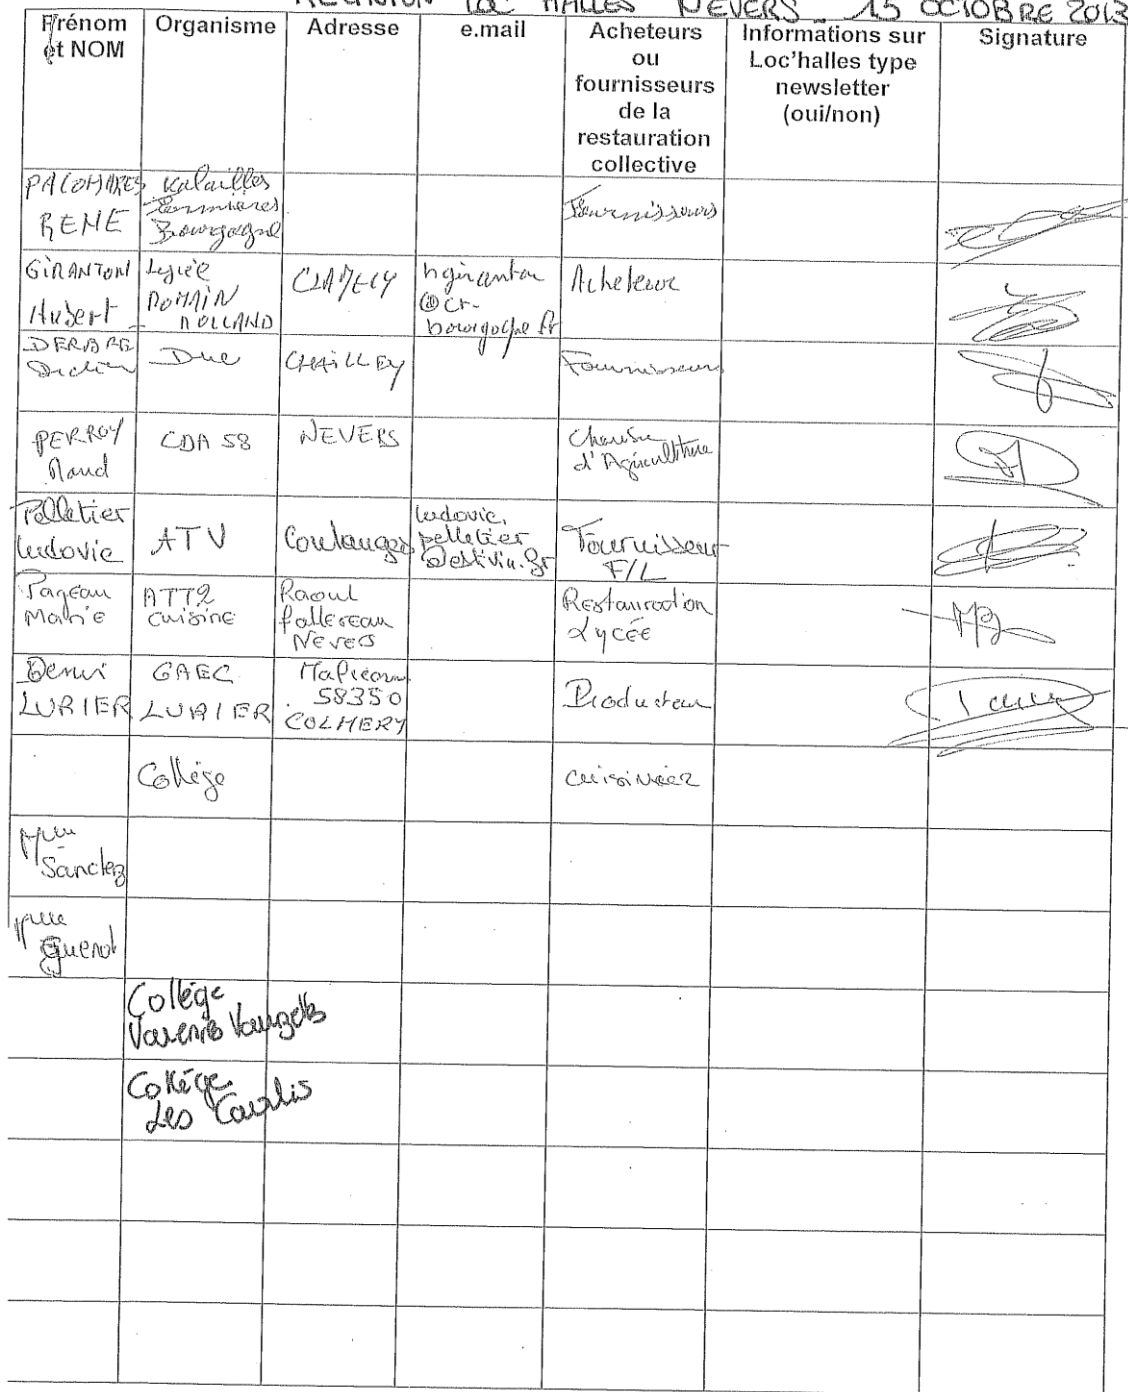 REUNION LOC'HALLES NEVERS - 15 OCTOBRE 2013
Prénom et NOM
Organisme
Adresse
e.mail
Acheteurs ou fournisseurs de la restauration collective
Informations sur Loc'halles type newsletter (oui/non)
Signature
PALOMARES
RENE
Volailles
Fermières
Bourgogne
Fournisseurs
GIRANTON
Hubert
Lycée
ROMAIN
ROLLAND
CLAMECY
hgiranton
@cr-
bourgogne.fr
Acheteur
Duc
CHAILLEY
Fournisseur
PERROY
Maud
CDA 58
NEVERS
Chambre
d'Agriculture
Pelletier
Ludovic
ATV
Coulanges
ludovic.
pelletier
@estivin.fr
Fournisseur
F/L
Pageau
Marie
ATT2
cuisine
Raoul
follereau
Nevers
Restauration
Lycée
Denis
LURIER
GAEC
LURIER
58350
COLMERY
Producteur
Collège
cuisinier
Mme
Sanchez
Guenot
Collège
Varennes Vauzelles
Collège
Les Courlis